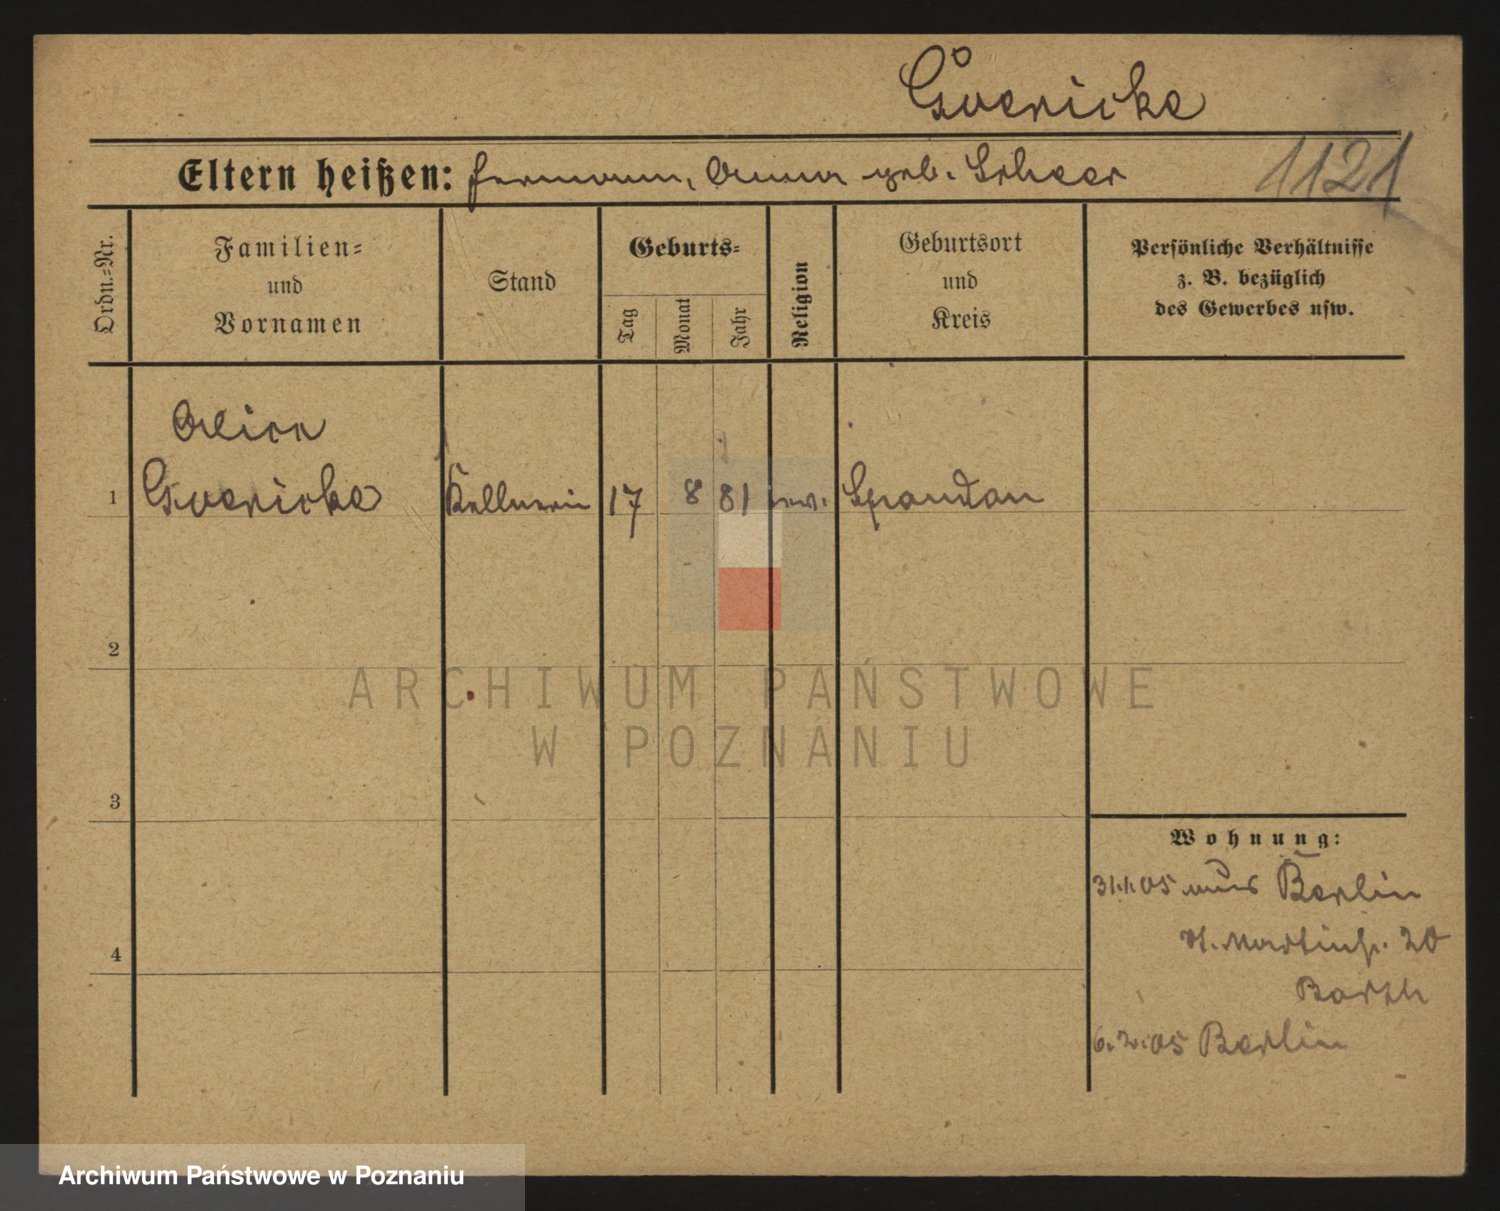 Goericke
Eltern heißen: Hermann, Anna geb. Scheer
1121
Ordn.=Nr.
Familien=
und
Vornamen
Stand
Geburts=
Tag
Monat
Jahr
Religion
Geburtsort
und
Kreis
Persönliche Verhältnisse
z. B. bezüglich
des Gewerbes usw.
Alice
1 Goericke Kellnerin 17 8 81 ev. Spandau
2
ARCHIWUM PAŃSTWOWE
W POZNANIU
3
Wohnung:
31.1.05 aus Berlin
St. Martinstr. 20
Barth
4
6.2.05 Berlin
Archiwum Państwowe w Poznaniu